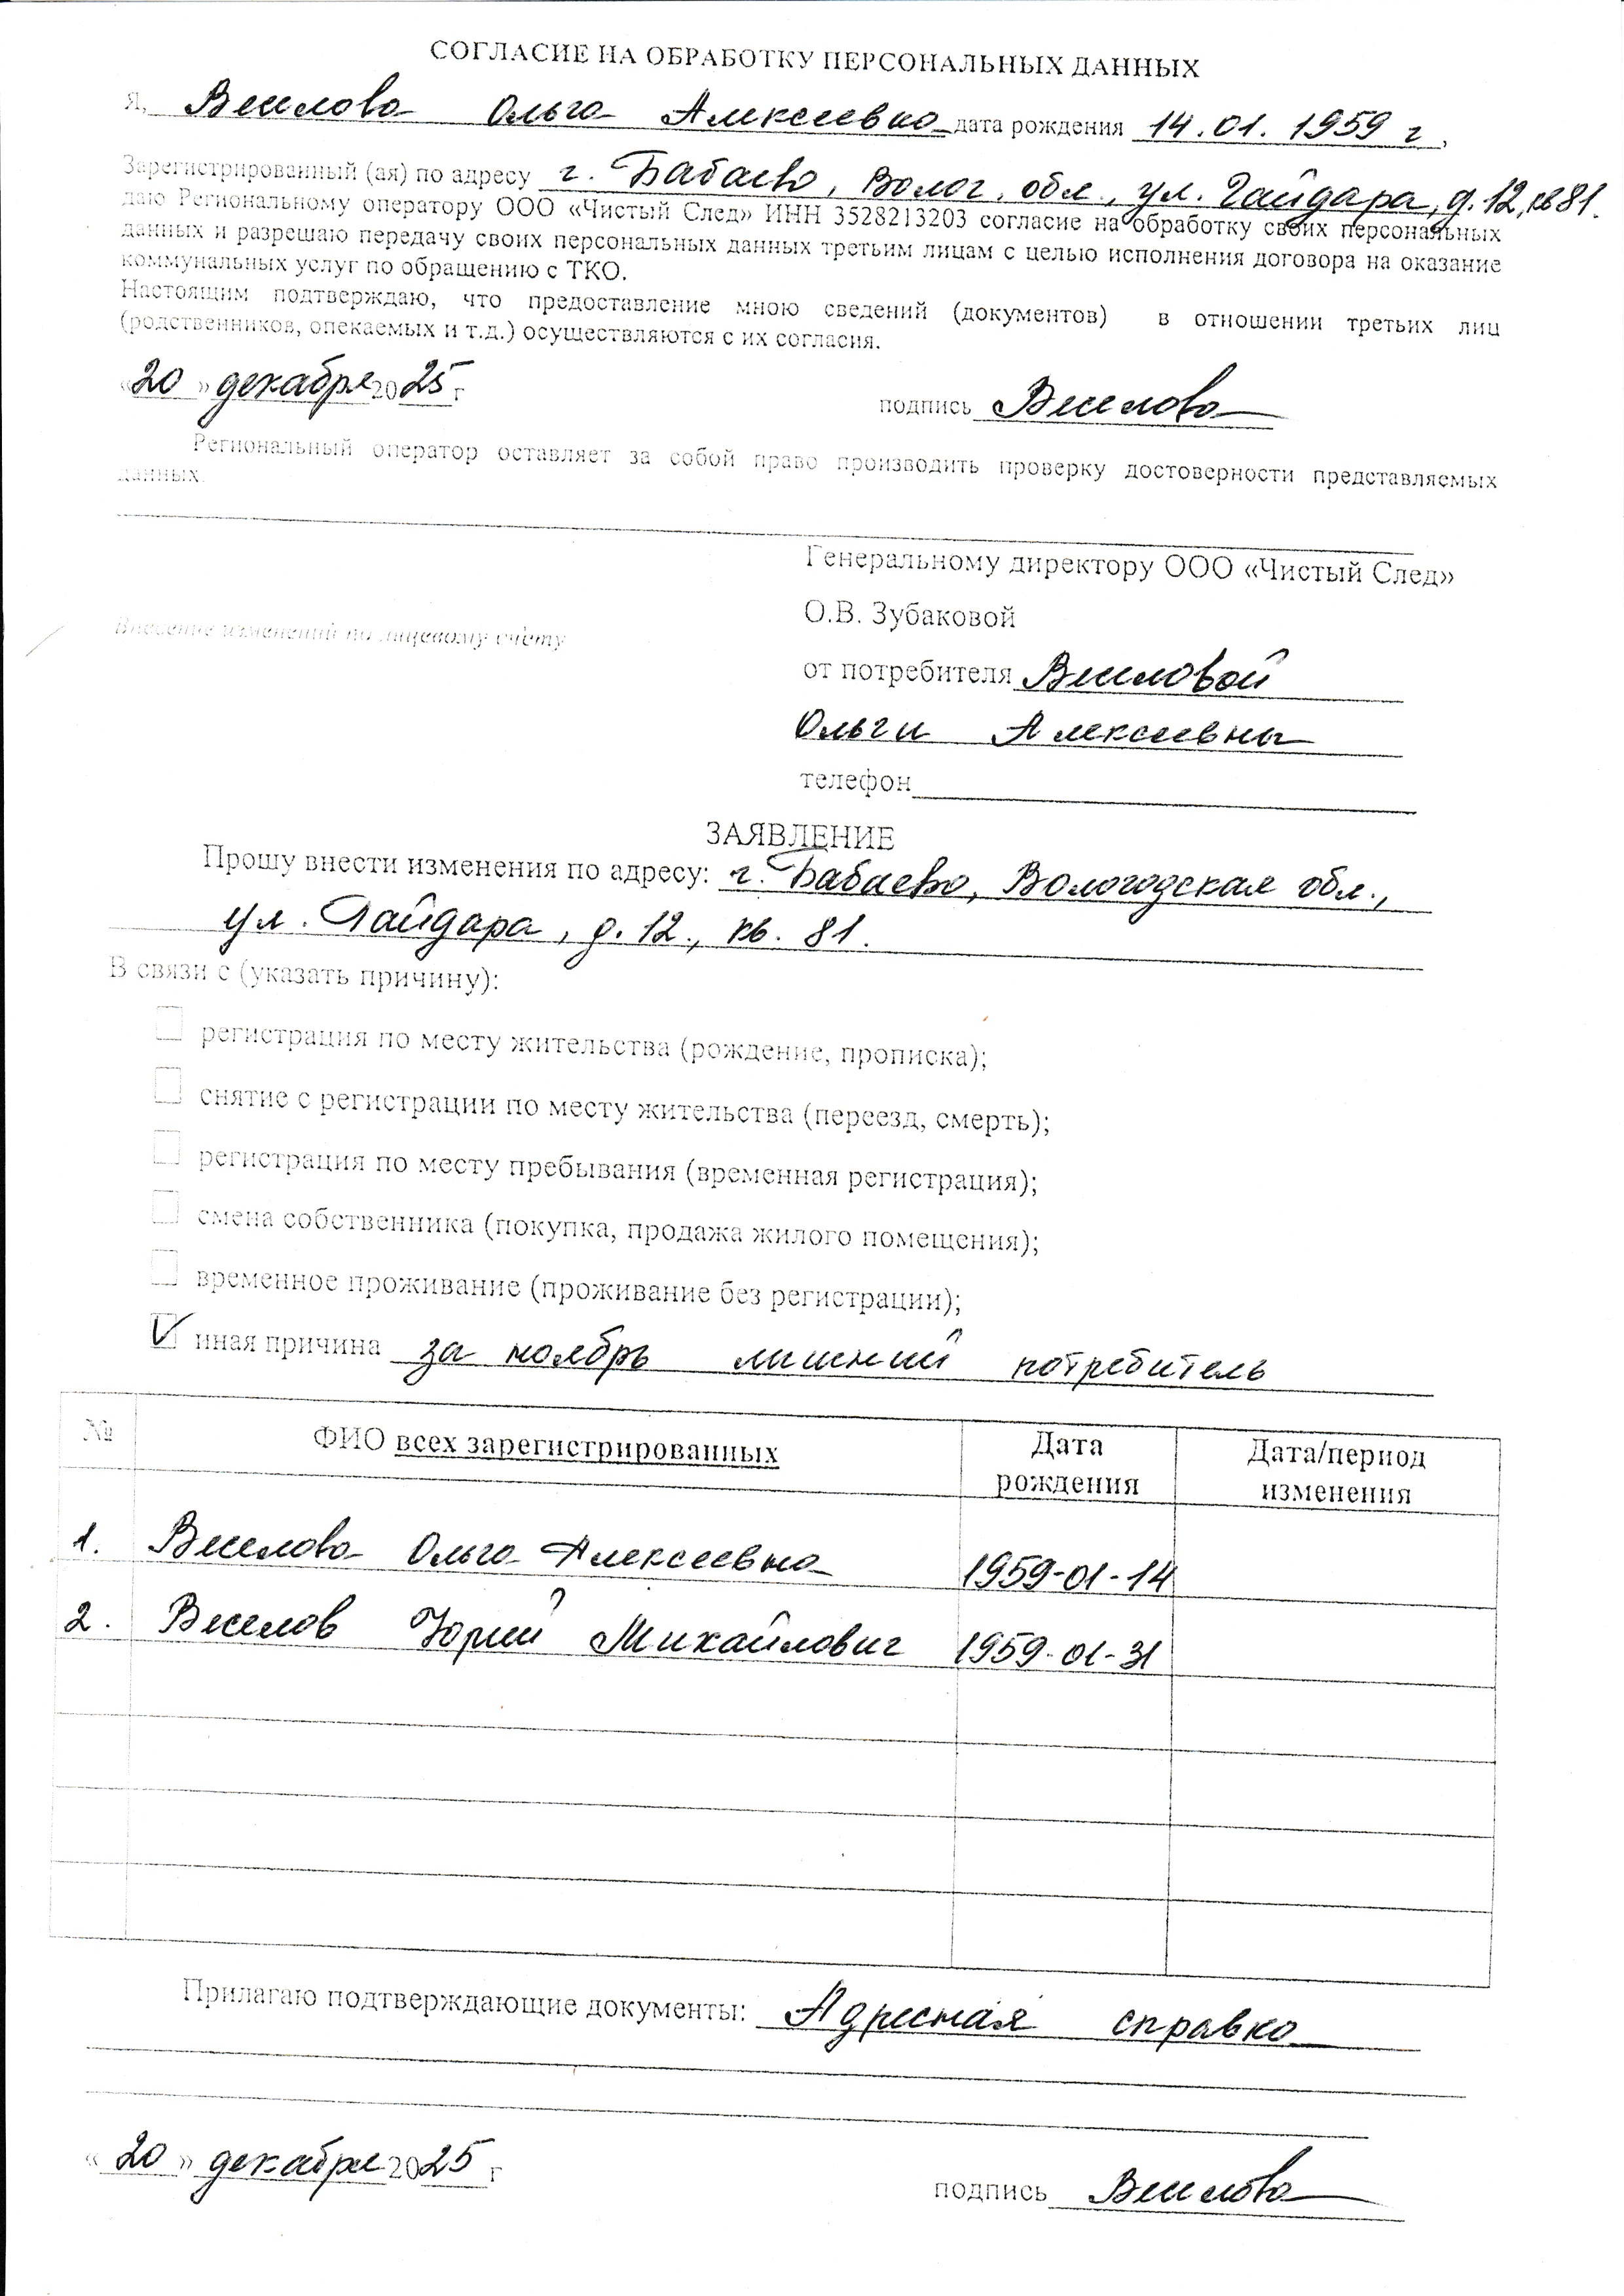 СОГЛАСИЕ НА ОБРАБОТКУ ПЕРСОНАЛЬНЫХ ДАННЫХ
Я, Веселова Ольга Алексеевна дата рождения 14.01.1959 г,
Зарегистрированный (ая) по адресу г. Бабаево, Волог. обл., ул. Гайдара, д.12, кв 81.
даю Региональному оператору ООО «Чистый След» ИНН 3528213203 согласие на обработку своих персональных
данных и разрешаю передачу своих персональных данных третьим лицам с целью исполнения договора на оказание
коммунальных услуг по обращению с ТКО.
Настоящим подтверждаю, что предоставление мною сведений (документов) в отношении третьих лиц
(родственников, опекаемых и т.д.) осуществляются с их согласия.
«20» декабря 2025 г
подпись Веселова
Региональный оператор оставляет за собой право производить проверку достоверности представляемых
данных.
Генеральному директору ООО «Чистый След»
О.В. Зубаковой
Внесение изменений по лицевому счёту
от потребителя Веселовой
Ольги Алексеевны
телефон
ЗАЯВЛЕНИЕ
Прошу внести изменения по адресу: г. Бабаево, Вологодская обл.,
ул. Гайдара, д. 12., кв. 81.
В связи с (указать причину):
регистрация по месту жительства (рождение, прописка);
снятие с регистрации по месту жительства (переезд, смерть);
регистрация по месту пребывания (временная регистрация);
смена собственника (покупка, продажа жилого помещения);
временное проживание (проживание без регистрации);
V иная причина за ноябрь лишний потребитель
№ ФИО всех зарегистрированных Дата рождения Дата/период изменения
1. Веселова Ольга Алексеевна 1959-01-14
2. Веселов Юрий Михайлович 1959-01-31
Прилагаю подтверждающие документы: Адресная справка
«20» декабря 2025 г
подпись Веселова